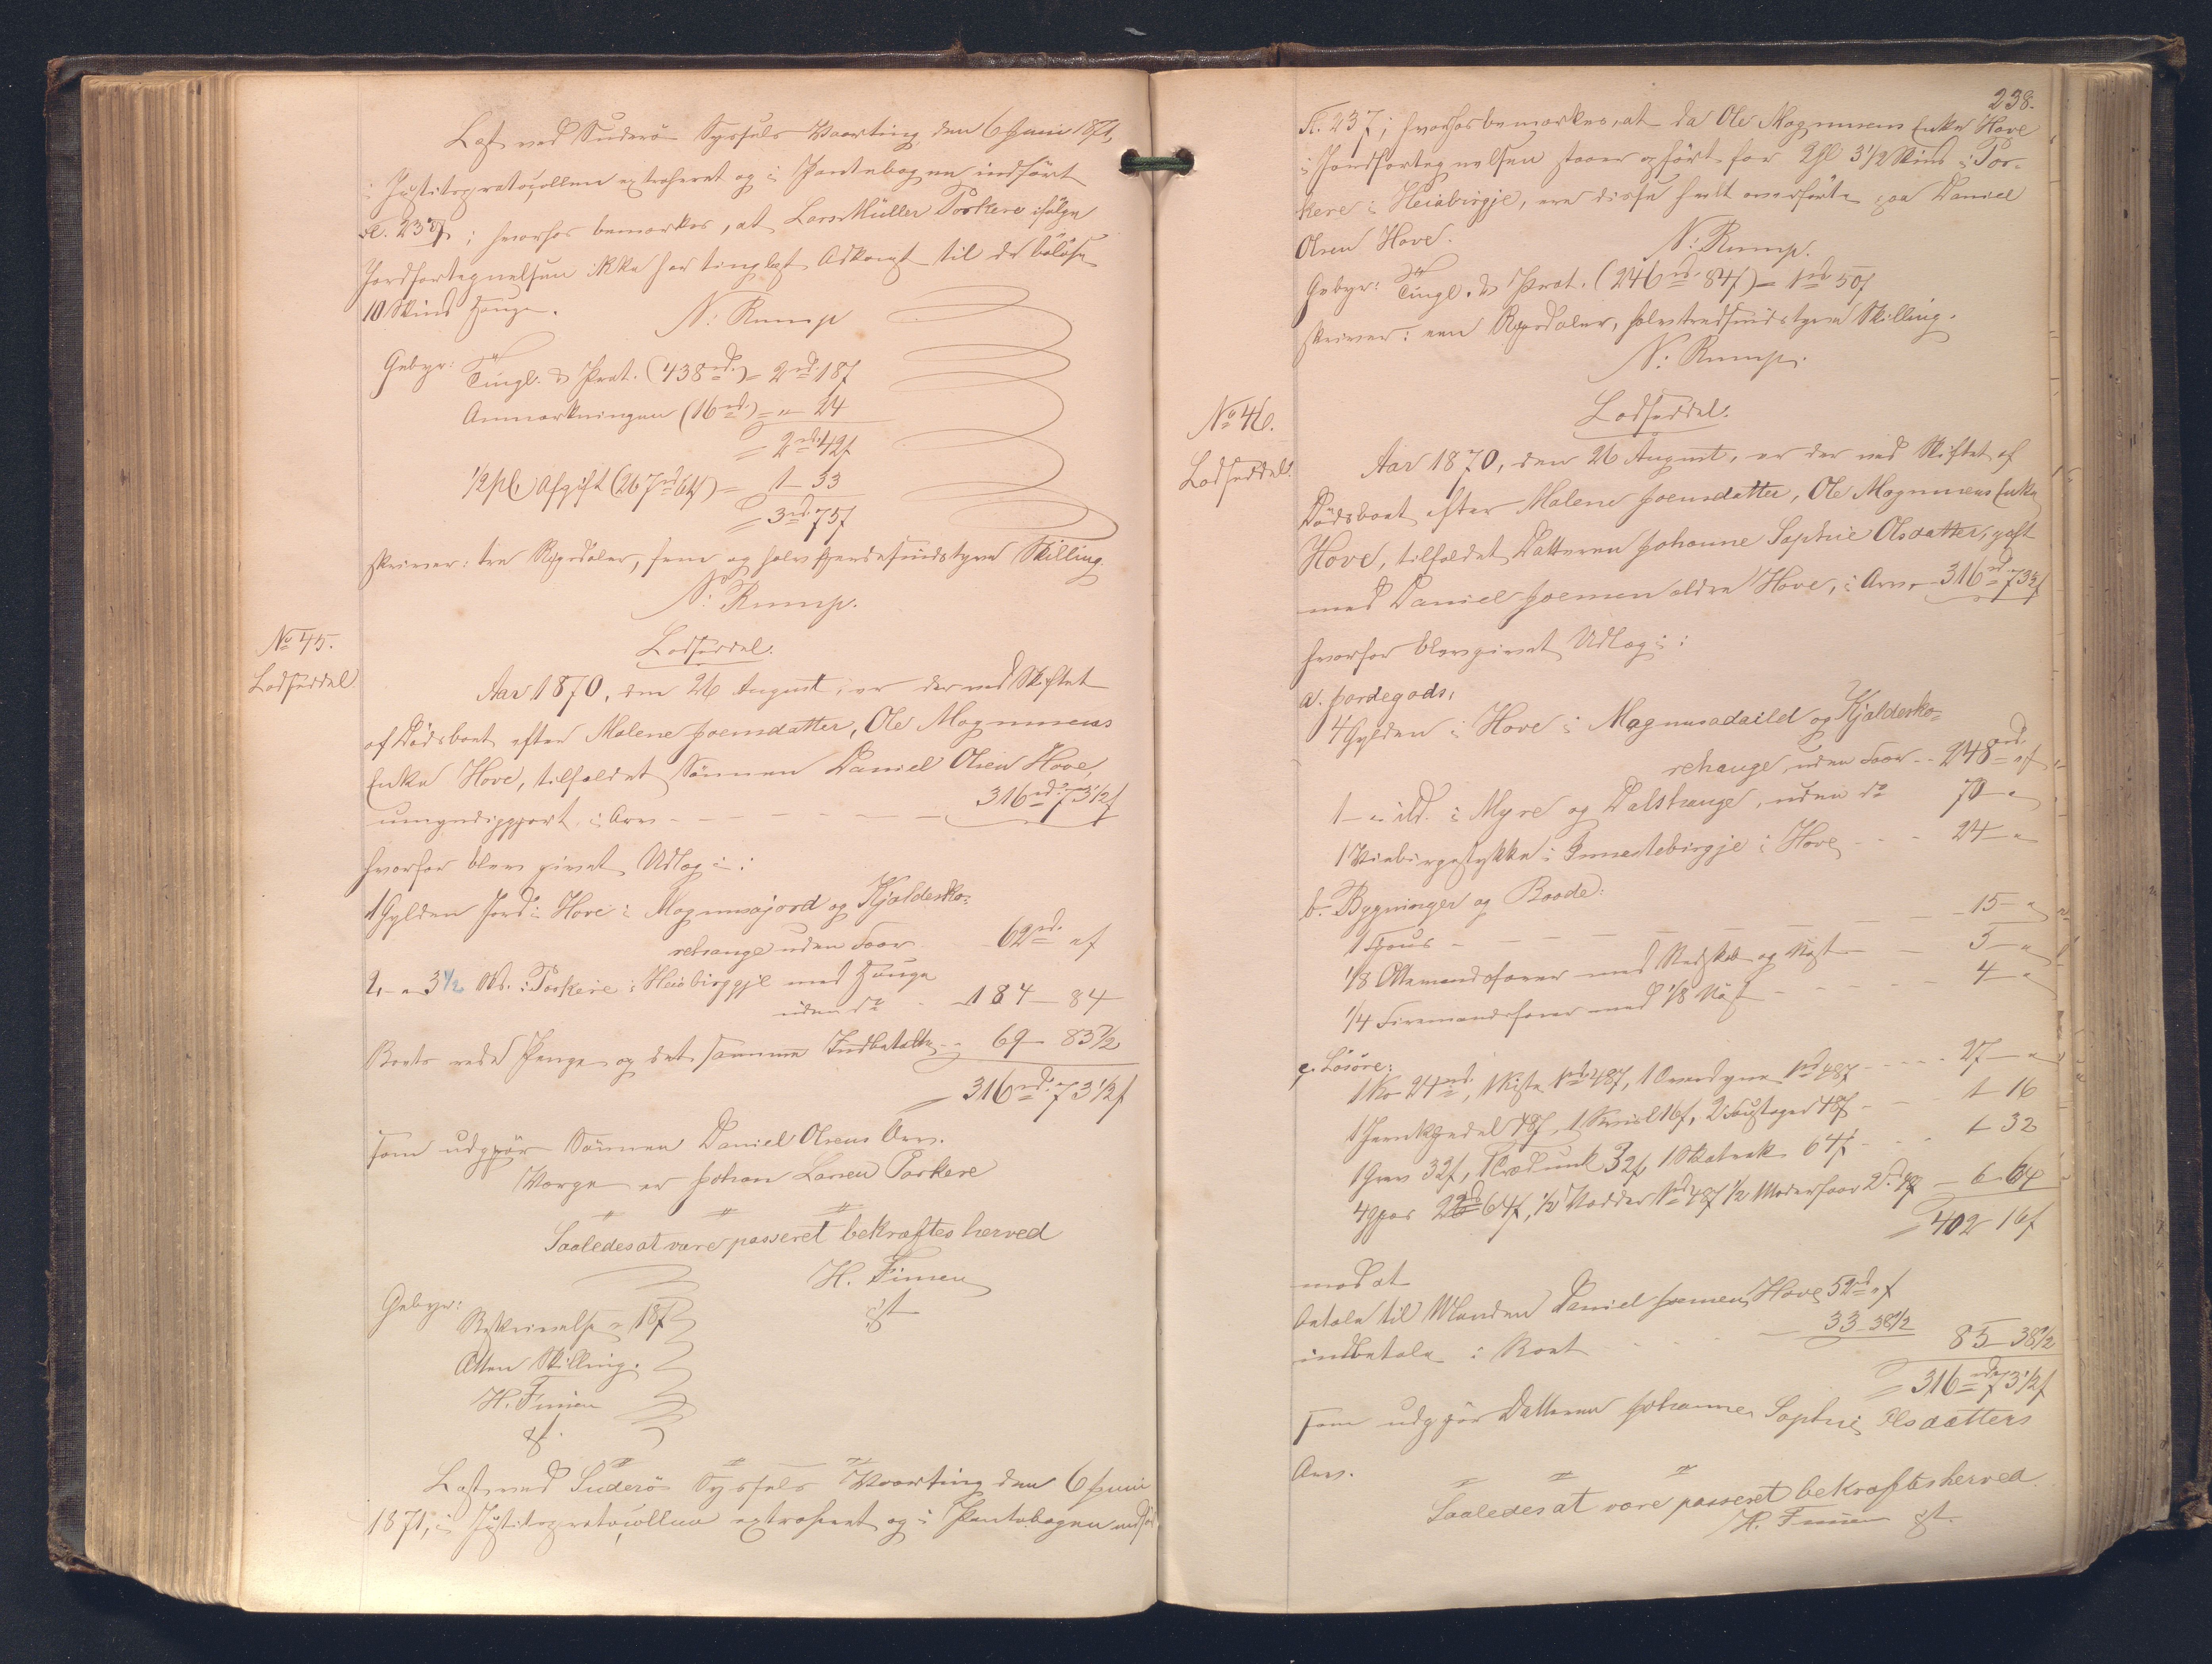 Læst ved Suderö Syssels Vaarting den 6 Juni 1871,
i Justitsprotocollen extraheret og i Pantebogen indført
Fol. 237; hvorhos bemærkes, at Lars Müller Porkere ifølge
Jordfortegnelsen ikke har tinglæst Adkomst til de
10 Skind Hauge.
N: Rump
Gebyr: Tingl. & Prot. (438rd.) = 2rd 18ſ
Anmærkningen (16rd.) = " 24
= 2rd 42ſ
1/2 pCt Afgift (267rd 64ſ) = 1 - 33
= 3rd 75ſ
skriver: tre Rigsdaler, fem og halvfjerdesindstyve Skilling.
N: Rump.
No 45.
Lodseddel
Lodseddel.
Aar 1870, den 26 August, er der ved Skiftet
af Dödsboet efter Malene Joensdatter, Ole Magnusens
Enke Hove, tilfaldet Sönnen Daniel Olsen Hove,
umyndiggjort, i Arv - - - 316rd. 73 1/2ſ
hvorfor blev givet Udlæg i:
1 Gylden Jord i Hove i Magnusajord og Kjaldesko-
rehauge uden Faar - 62rd. "ſ
2 - " 3 1/2 Sk. i Porkere i Heiabirgje med Hauge
uden do - 184 - 84
Boets rede Penge og det samme Indbetalte - 69 - 85 1/2
= 316rd. 73 1/2ſ
som udgjör Sönnen Daniel Olsens Arv.
Værge er Johan Larsen Porkere
Saaledes at være passeret bekræftes herved
H. Finsen
cst
Gebyr:
Beskrivelse " 18ſ
Atten Skilling.
H. Finsen
cst.
Læst ved Suderö Syssels Vaarting den 6 Juni
1871, i Justitsprotocollen extraheret og i Pantebogen indført
238.
Fol. 237; hvorhos bemærkes, at da Ole Magnusens Enke Hove
i Jordfortegnelsen staaer opført for 2 Gl 3 1/2 Skind i Por-
kere i Heiabirgje, ere disse heelt overførte paa Daniel
Olsen Hove.
N: Rump.
Gebyr: Tingl. & Prot. (246rd 84ſ) = 1rd 50ſ
skriver: een Rigsdaler, halvtredsindstyve Skilling.
N: Rump.
No 46.
Lodseddel.
Lodseddel.
Aar 1870, den 26 August, er der ved Skiftet af
Dödsboet efter Malene Joensdatter, Ole Magnusens Enke
Hove, tilfaldet Datteren Johanne Sophie Olsdatter, gift
med Daniel Joensen ældre Hove, i Arv - 316rd 73 1/2ſ
hvorfor blev givet Udlæg i:
a. Jordegods,
4 Gylden i Hove i Magnusadeild og Kjaldesko-
rehauge, uden Faar - 248rd. "ſ
1 - " Sk. i Myre og Dalshauge, uden do 70 - "
1 Heiabirgestykke i Innastebirgje i Hove - 24 - "
b. Bygninger og Baade:
1 Huus - - - 15 - "
1/8 Ottemandsfarer med Redskab og Nöst - 5 - "
1/4 Firemandsfarer med 1/8 Nöst - - - 4 - "
c. Lösöre:
1 Ko 24rd., 1 Kiste 1rd. 48ſ, 1 Overdyne 1rd 48ſ - - 27 - "
1 Jernkjedel 48ſ, 1 16ſ, 2 48ſ - 1 16
1 Grev 32ſ, 1 32ſ, 1 64ſ - 1 32
4 Gjæs 2rd 64ſ, 1/2 Vædder 1rd 48ſ 1/2 Moderfaar 2rd. 48ſ - 6 - 64
= 402 - 16ſ
mod at
betale til Manden Daniel Joensen Hove 52rd "ſ
indbetale i Boet - 33 38 1/2
85 - 38 1/2
= 316rd 73 1/2ſ
som udgjör Datteren Johanne Sophie Olsdatters
Arv.
Saaledes at være passeret bekræftes herved
H. Finsen cst.